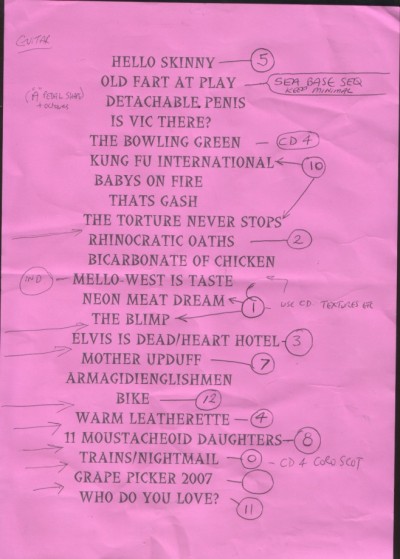 GUITAR
HELLO SKINNY — 5
OLD FART AT PLAY — SEA BASE SEQ
KEEP MINIMAL
DETACHABLE PENIS
IS VIC THERE?
THE BOWLING GREEN — CD 4
KUNG FU INTERNATIONAL 10
BABYS ON FIRE
THATS GASH
THE TORTURE NEVER STOPS
RHINOCRATIC OATHS — 2
BICARBONATE OF CHICKEN
MELLO-WEST IS TASTE
NEON MEAT DREAM 1 — USE CD TEXTURES
THE BLIMP
ELVIS IS DEAD/HEART HOTEL — 3
MOTHER UPDUFF — 7
ARMAGIDIENGLISHMEN
BIKE — 12
WARM LEATHERETTE — 4
11 MOUSTACHEOID DAUGHTERS — 8
TRAINS/NIGHTMAIL — 0 — CD 4
GRAPE PICKER 2007
WHO DO YOU LOVE? 11